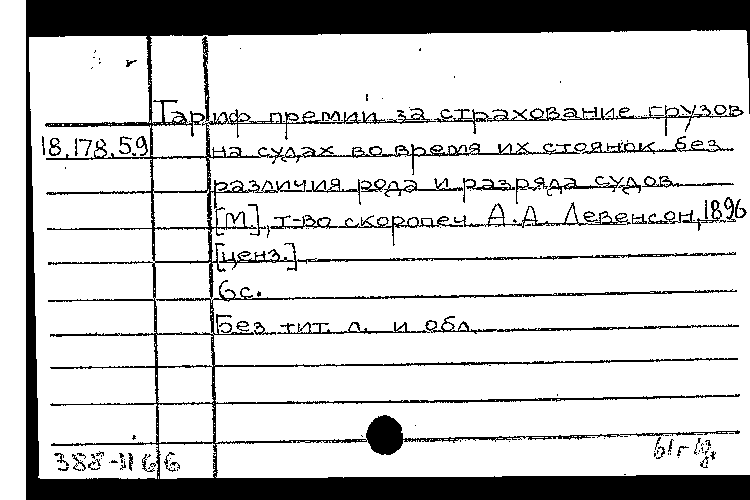 Тариф премий за страхование грузов
18.178.59 на судах во время их стоянок без
различия рода и разряда судов.
[М.], т-во скоропеч. А.А. Левенсон, 1896
[ценз.]
6 с.
Без тит. л. и обл.
388-1166